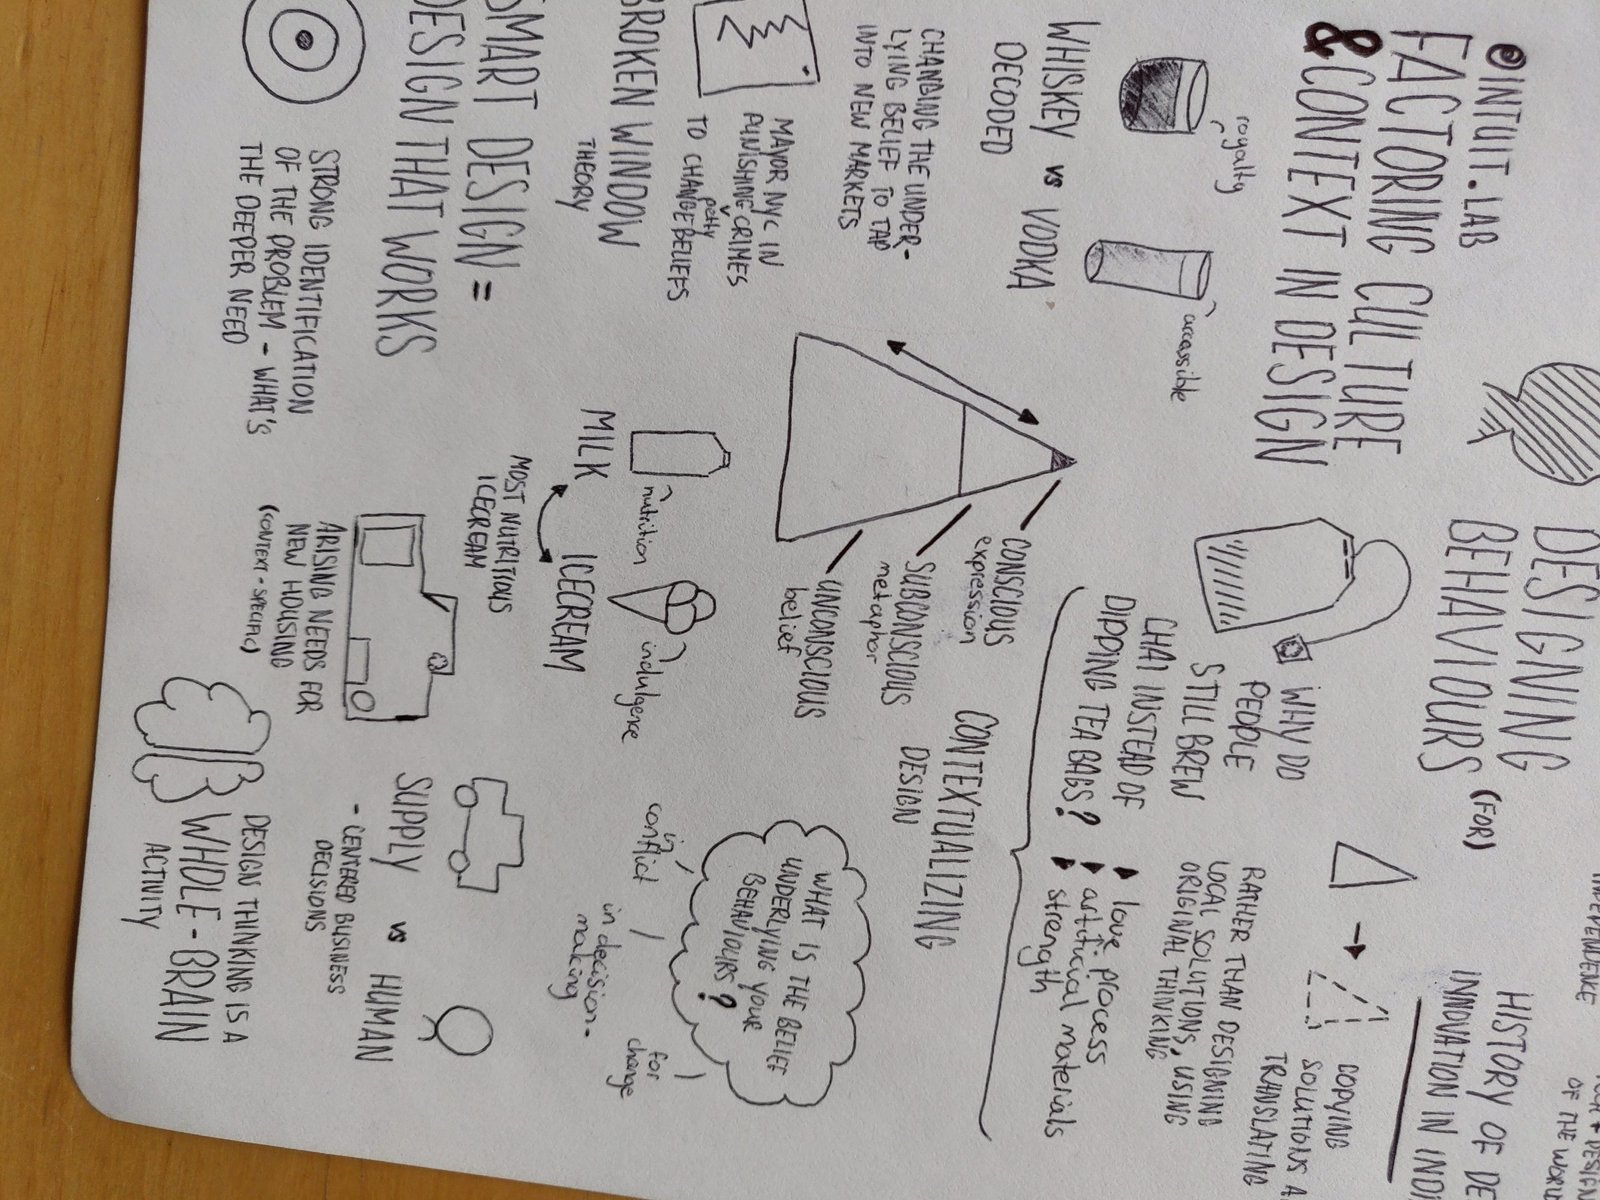 INTUIT.LAB
FACTORING CULTURE
& CONTEXT IN DESIGN
royalty
accessible
WHISKEY vs VODKA
DECODED
CHANGING THE UNDER-
LYING BELIEF TO TAP
INTO NEW MARKETS
MAYOR NYC IN
PUNISHING petty CRIMES
TO CHANGE BELIEFS
BROKEN WINDOW
THEORY
SMART DESIGN =
DESIGN THAT WORKS
STRONG IDENTIFICATION
OF THE PROBLEM - WHAT'S
THE DEEPER NEED
DESIGNING
BEHAVIOURS (FOR)
WHY DO
PEOPLE
STILL BREW
CHAI INSTEAD OF
DIPPING TEA BAGS?
love process
artificial materials
strength
CONSCIOUS
expression
SUBCONSCIOUS
metaphor
UNCONSCIOUS
belief
CONTEXTUALIZING
DESIGN
nutrition
indulgence
MILK
ICECREAM
MOST NUTRITIOUS
ICECREAM
WHAT IS THE BELIEF
UNDERLYING YOUR
BEHAVIOURS?
in
conflict
in decision-
making
for
change
ARISING NEEDS FOR
NEW HOUSING
(CONTEXT-SPECIFIC)
SUPPLY vs HUMAN
- CENTERED BUSINESS
DECISIONS
DESIGN THINKING IS A
WHOLE-BRAIN
ACTIVITY
INDEPENDENCE
OF THE WORL
HISTORY OF DE
INNOVATION IN INDI
COPYING
SOLUTIONS A
TRANSLATING
RATHER THAN DESIGNING
LOCAL SOLUTIONS, USING
ORIGINAL THINKING